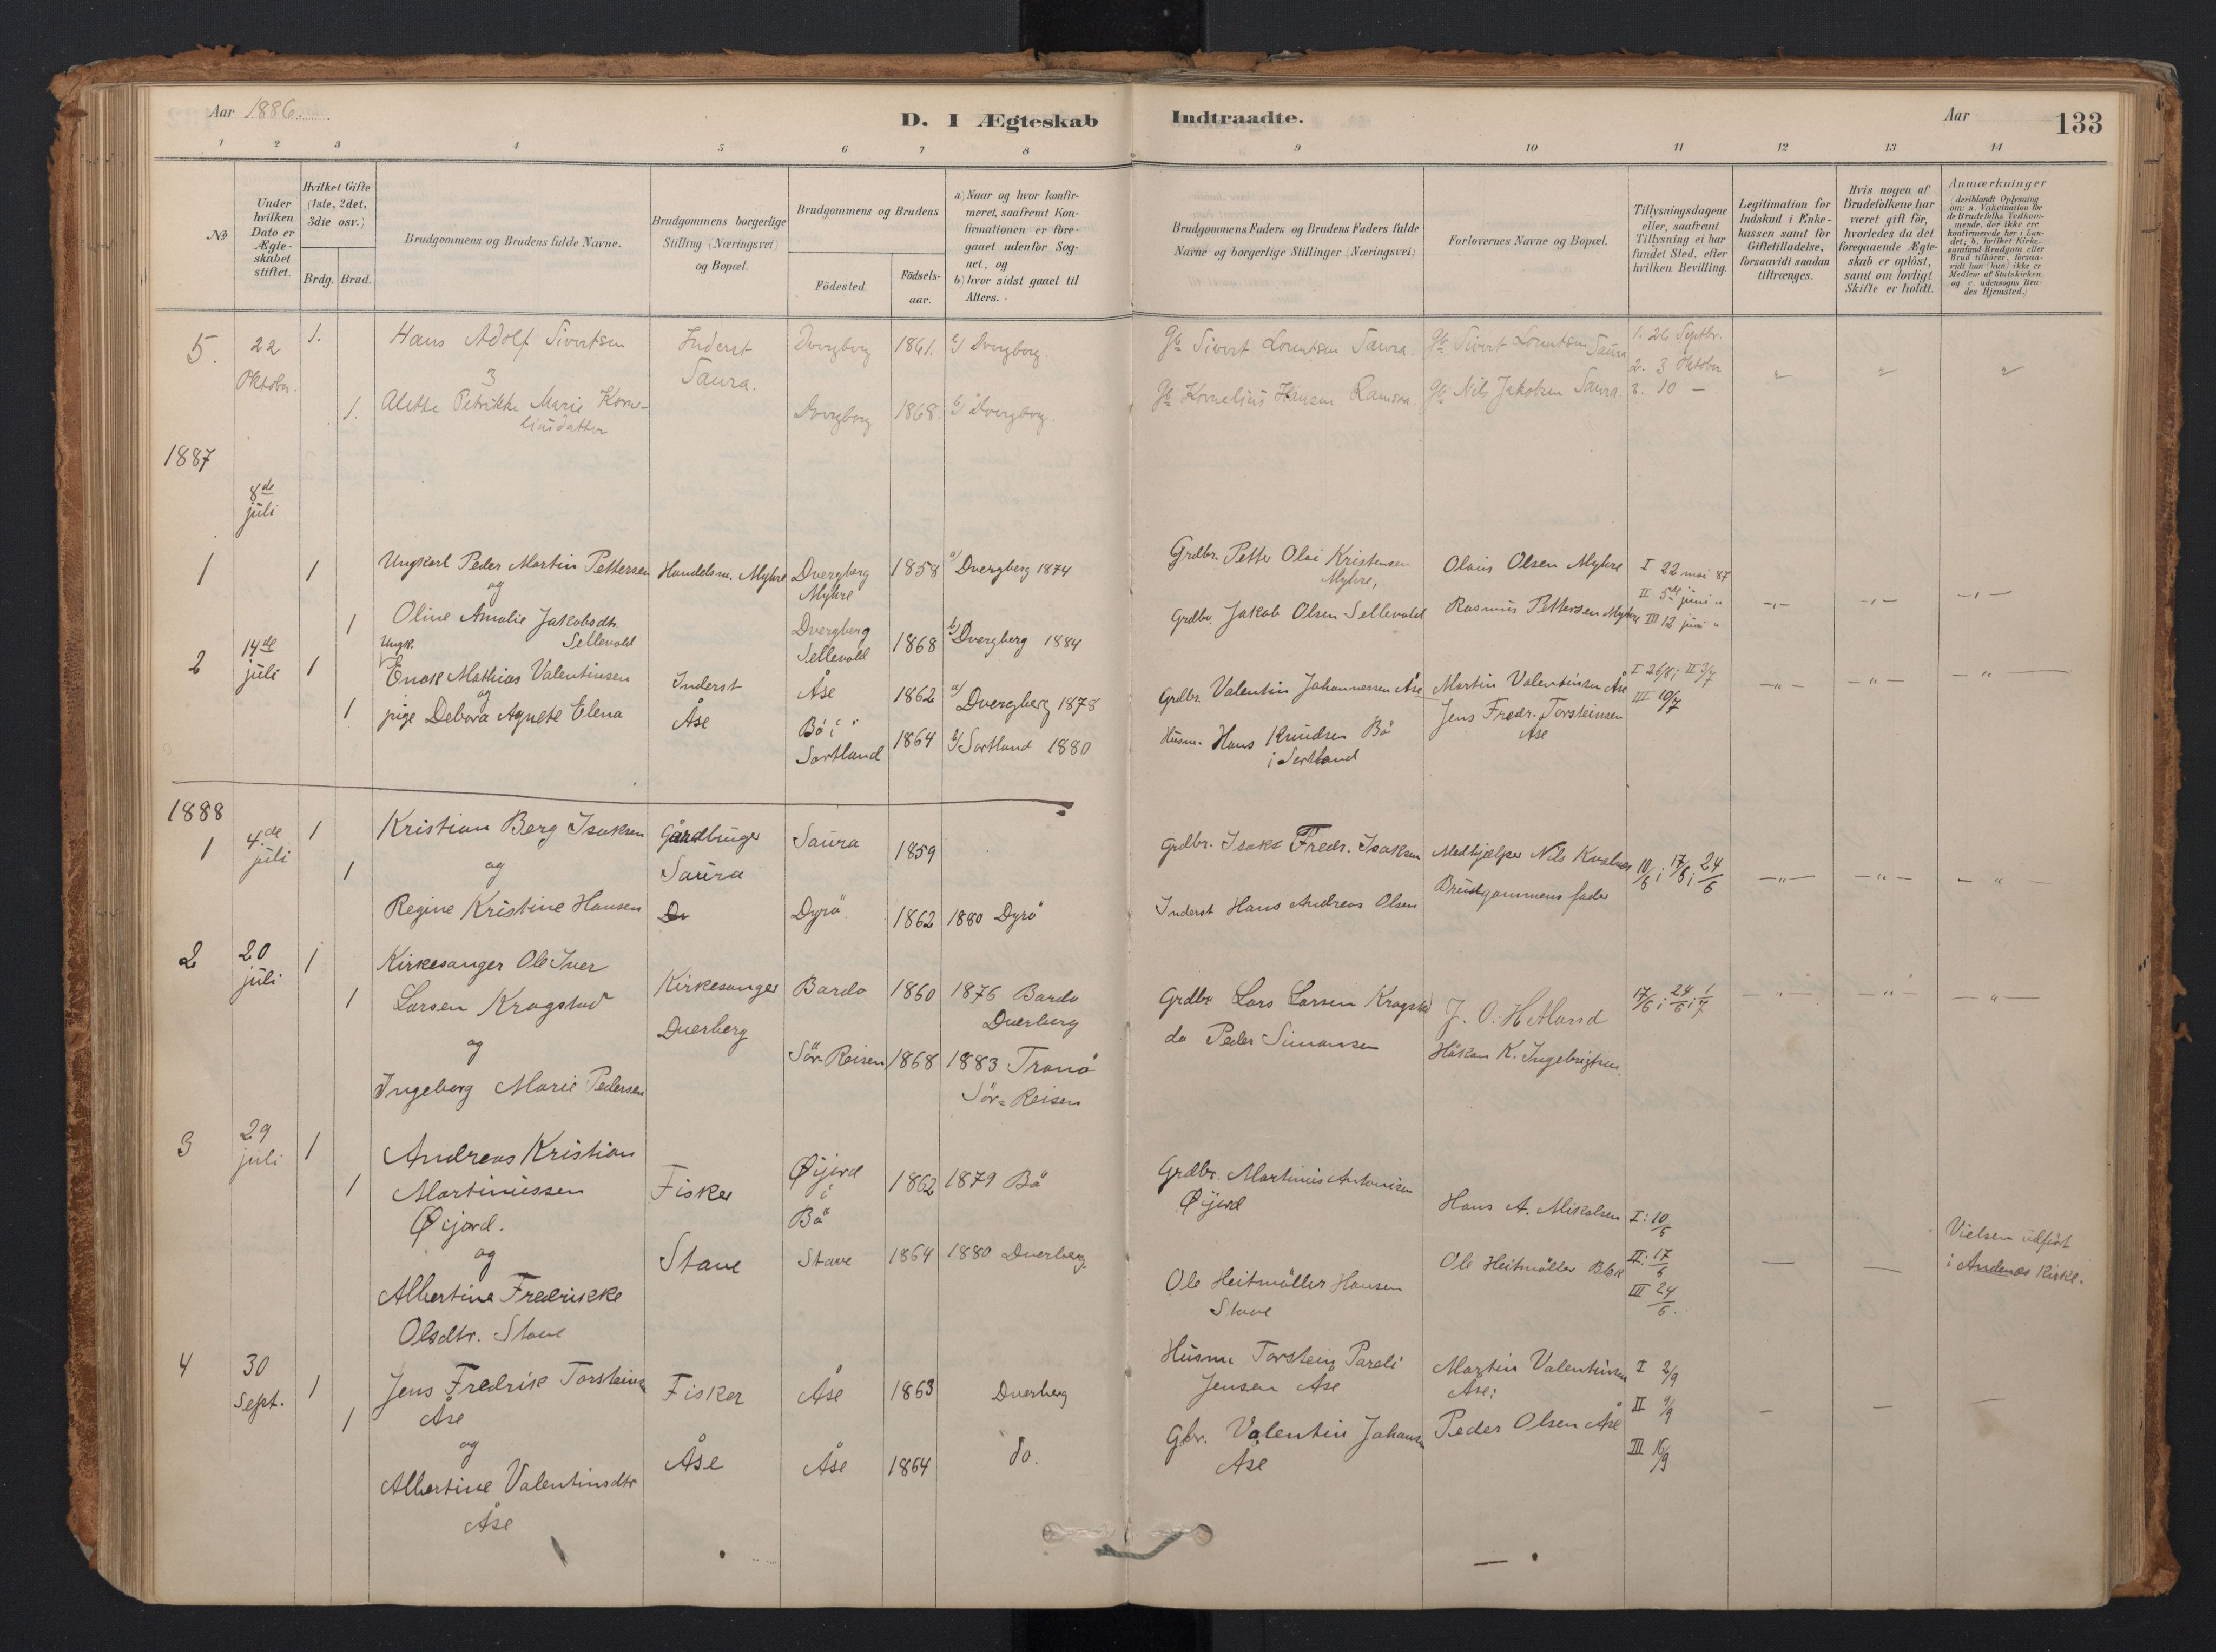 Aar 1886.
D. I Ægteskab Indtraadte.
Aar
133
1 2 3 4 5 6 7 8 9 10 11 12 13 14
No
Under hvilken Dato er Ægteskabet stiftet.
Hvilket Gifte (1ste, 2det, 3die osv.)
Brdg. Brud.
Brudgommens og Brudens fulde Navne.
Brudgommens borgerlige Stilling (Næringsvei) og Bopæl.
Brudgommens og Brudens
Födested.
Födselsaar.
a) Naar og hvor konfirmeret, saafremt Konfirmationen er foregaaet udenfor Sognet, og
b) hvor sidst gaaet til Alters.
Brudgommens Faders og Brudens Faders fulde Navne og borgerlige Stillinger (Næringsvei)
Forlovernes Navne og Bopæl.
Tillysningsdagene eller, saafremt Tillysning ei har fundet Sted, efter hvilken Bevilling.
Legitimation for Indskud i Enkekassen samt for Giftetilladelse, forsaavidt saadan tiltrænges.
Hvis nogen af Brudefolkene har været gift för, hvorledes da det foregaaende Ægteskab er oplöst, samt om lovligt Skifte er holdt.
Anmærkninger (deriblandt Oplysning om: a. Vakcination for de Brudefolks Vedkommende, der ikke ere konfirmerede her i Landet; b. hvilket Kirkesamfund Brudgom eller Brud tilhörer, forsaavidt han (hun) ikke er Medlem af Statskirken, og c. udensogns Brudes Hjemsted.)
5. 22 Oktober. 1. Hans Adolf Sivertsen Inderst Saura. Dvergberg 1861. a/ Dvergberg. Gb Sivert Lorentsen Saura. Gb Sivert Lorentsen Saura 1. 26 Septbr. 2. 3 Oktober 3. 10 —
3
1. Alette Petrikke Marie Korneliusdatter Dvergberg 1868. b/ Dvergberg. Gb Kornelius Hansen Ramsaa. Gb Nils Jakobsen Saura.
1887
8de juli
1 1 Ungkarl Peder Martin Pettersen Handelsm. Myhre Dvergberg Myhre 1858 a/ Dvergberg 1874 Grdbr. Petter Olai Kristensen Myhre, Olaus Olsen Myhre I 22 mai 87
og
1 Oline Amalie Jakobsdtr. Sellevold Dvergberg Sellevold 1868 b/ Dvergberg 1884 Grdbr. Jakob Olsen Sellevold Rasmus Pettersen Myhre II 5te juni " III 12 juni "
2 14de juli 1 Ungk. Enok Mathias Valentinsen Inderst Åse Åse 1862 a/ Dvergberg 1878 Grdbr. Valentin Johannessen Åse Martin Valentinsen Åse I 26/6; II 3/7 III 10/7
og
1 pige Debora Agnete Elena Bö i Sortland 1864 b/ Sortland 1880 Husm. Hans Knudsen Bö i Sortland Jens Fredr. Torsteinsen Åse
1888
1 4de juli 1 Kristian Berg Isaksen Gårdbruger Saura Saura 1859 Grdbr. Isak Fredr. Isaksen Medhjælper Nils Kvalnes 10/6; 17/6; 24/6
og
1 Regine Kristine Hansen Dyrö 1862 1880 Dyrö Inderst Hans Andreas Olsen Brudgommens fader
2 20 juli 1 Kirkesanger Ole Iver Larsen Kragstad Kirkesanger Dverberg Bardo 1860 1876 Bardo Dverberg Grdbr Lars Larsen Kragstad J. O. Hetland 17/6; 24/6; 1/7
og
1 Ingeborg Marie Pedersen Sör-Reisen 1868 1883 Tranö Sör-Reisen do Peder Simonsen Håkon K. Ingebrigtsen.
3 29 juli 1 Andreas Kristian Martinussen Öijord. Fisker Stave Öijord i Bö 1862 1879 Bö Grdbr. Martinus Antonisen Öijord Hans A. Mikalsen I: 10/6
og
1 Albertine Fredrikke Olsdtr. Stave Stave 1864 1880 Dverberg. Ole Heitmöller Hansen Stave Ole Heitmöller II: 17/6 III 24/6. Vielsen udfört i Andenes Kirke.
4 30 Sept. 1 Jens Fredrik Torsteinsen Åse Fisker Åse Åse 1863 Dverberg Husm Torstein Pareli Jensen Åse Martin Valentinsen Åse; I 2/9
og
1 Albertine Valentinsdtr Åse Åse 1864 do. Gbr. Valentin Johansen Åse Peder Olsen Åse II 9/9 III 16/9